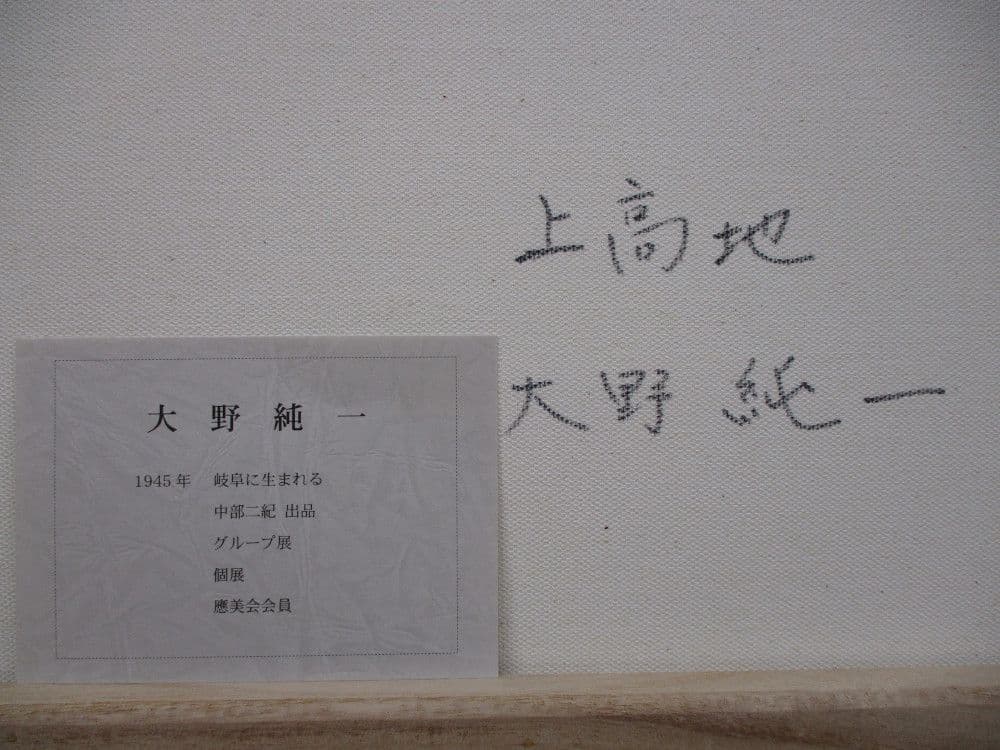 上高地
大野純一
大野純一
1945年 岐阜に生まれる
中部二紀 出品
グループ展
個展
應美会会員